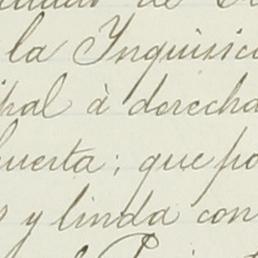 la Inquisici
ipal à derecha
uerta; que po
y linda con